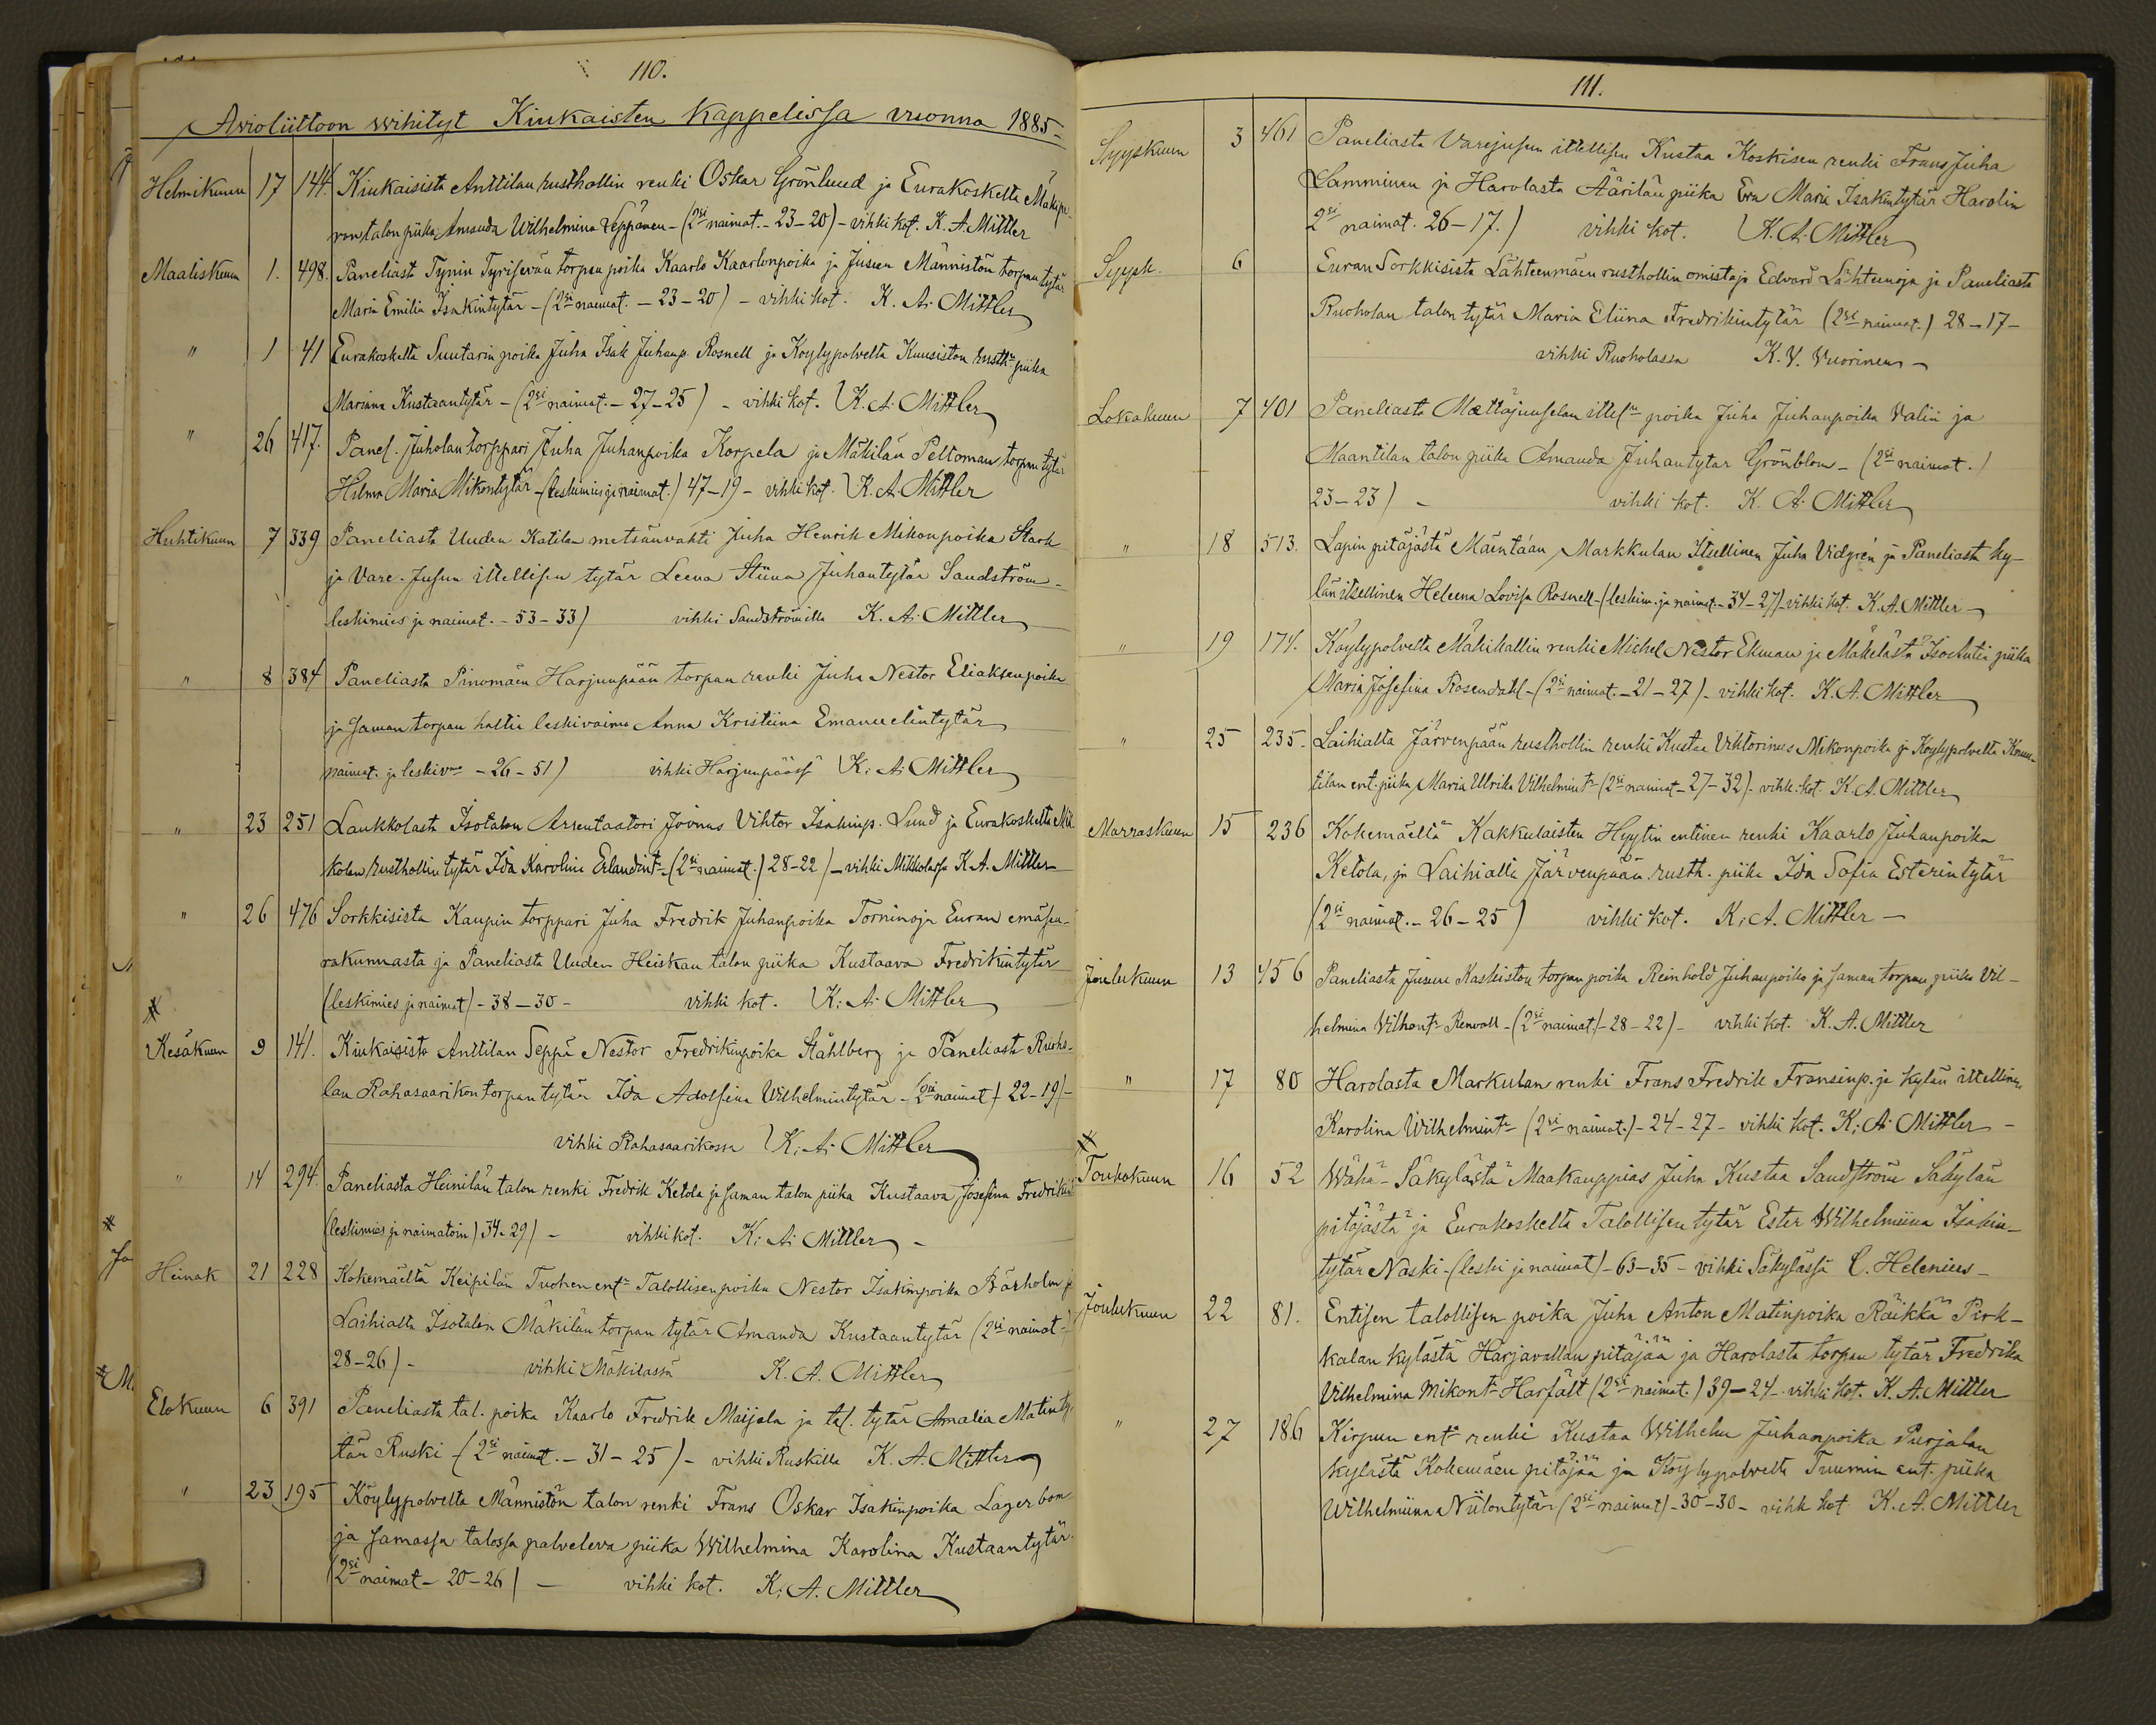 110.
Avioliittoon wihityt Kiukaisten Kappelissa vuonna 1885
Helmikuun 17 144. Kiukaisista Anttilan rusthollin renki Oskar Grönlund ja Eurakoskelta
talon piika Amanda Wilhelmina Seppänen - (2si naimat. - 23-20) - vihki kot. K. A. Mittler
Maaliskuun 1. 498. Paneliasta Tynin torpan poika Kaarlo Kaarlonpoika ja Jusun Männistön torpan tytär
Maria Emilia Isakintytär - (2si naimat. - 23-20) - vihki kot. K. A. Mittler
" 1 41 Eurakoskelta Suutarin poika Juha Isak Juhanp. Rosnell ja Köylypolvelta Kuusiston rusth. piika
Mariana Kustaantytär - (2si naimat. - 27-25) - vihki kot. K. A. Mittler
" 26 417. Panel. Juholan torppari Juha Juhanpoika Korpela ja Mäkilän Peltoman torpan tytär
Hilma Maria Mikontytär - (leskimies ja naimat.) 47-19 - vihki kot. K. A. Mittler
Huhtikuun 7 339 Paneliasta Uuden Katilan metsänvahti Juha Henrik Mikonpoika Stark
ja Vare-Jusun ittellisen tytär Leena Stiina Juhantytär Sandström -
leskimies ja naimat. - 53-33) vihki Sandströmillä K. A. Mittler
" 8 384 Paneliasta Pinomäen Harjunpään torpan renki Juha Nestor Eliaksenpoika
ja saman torpan haltia leskivaimo Anna Kristiina Emanuelintytär
naimat. ja leskivmo - 26-51) vihki Harjunpäässä K. A. Mittler
" 23 251 Laukkolasta Isotalon Arrentaatori Joonas Vihtor Isakinp. Lund ja Eurakoskelta Mik
kolan rusthollin tytär Ida Karolina Erlandint. (2si naimat.) 28-22) - vihki Mikkolassa K. A. Mittler
" 26 476 Sorkkisista Kaupin torppari Juha Fredrik Juhanpoika Torninoja Euran emäseu-
rakunnasta ja Paneliasta Uuden Heiskan talon piika Kustaava Fredrikintytär
(leskimies ja naimat) - 38-30 - vihki kot. K. A. Mittler
Kesäkuun 9 141. Kiukaisista Anttilan Seppä Nestor Fredrikinpoika Ståhlberg ja Paneliasta Ruoho-
lan Rahasaarikon torpan tytär Ida Adolfina Wilhelmintytär - (2si naimat) 22-19) -
vihki Rahasaarikossa K. A. Mittler
" 14 294. Paneliasta Heinilän talon renki Fredrik Ketola ja saman talon piika Kustaava Josefina
(leskimies ja naimatoin) 34-29) - vihki kot. K. A. Mittler -
Heinäk 21 228 Kokemäeltä Keipilän Tuohen ent. Talollisen poika Nestor Isakinpoika Bärholm ja
Laihialta Isotalon Mäkilän torpan tytär Amanda Kustaantytär (2si naimat -
28-26) - vihki Mäkilässä K. A. Mittler
Elokuun 6 391 Paneliasta tal. poika Kaarlo Fredrik Maijala ja tal. tytär Amalia Matinty-
tär Ruski - (2si naimat. - 31-25) - vihki Ruskilla K. A. Mittler
" 23 195 Köylypolvelta Männistön talon renki Frans Oskar Isakinpoika Lagerbom
ja samassa talossa palveleva piika Wilhelmina Karolina Kustaantytär.
(2si naimat - 20-26) - vihki kot. K. A. Mittler
111.
Syyskuun 3 461 Paneliasta Varejusun ittellisen Kustaa Koskisen renki Frans Juha
Lamminen ja Harolasta Äärilän piika Eva Maria Isakintytär Harolin
2si naimat. 26-17.) vihki kot. K. A. Mittler
Syysk. 6 Euran Sorkkisista Lähteenmäen rusthollin omistaja Edvard Lähteenoja ja Paneliasta
Ruoholan talon tytär Maria Eliina Fredrikintytär (2si naimat.) 28-17 -
vihki Ruoholassa K. V. Vuorinen -
Lokakuun 7 401 Paneliasta Mattajuuselan ittel. poika Juha Juhanpoika Valin ja
Maantilan talon piika Amanda Juhantytär Grönblom - (2si naimat.)
23-23) - vihki kot. K. A. Mittler
" 18 513. Lapin pitäjästä Mäentaan Markkulan Itsellinen Juha Vidgrén ja Paneliasta ky-
län itsellinen Heleena Lovisa Rosnell - (leskim. ja naimat. - 34-27) - vihki kot. K. A. Mittler -
" 19 174. Köylypolvelta Mäkihallin renki Michel Nestor Ekman ja Mäkelästä Isoantin piika
Maria Josefina Rosendahl - (2si naimat. - 21-27) - vihki kot. K. A. Mittler
" 25 235. Laihialta Järvenpään rusthollin renki Kustaa Vihtorinus Mikonpoika ja Köylypolvelta Knuu-
tilan ent. piika Maria Ulrika Vilhelmint. (2si naimat - 27-32) - vihk. kot. K. A. Mittler
Marraskuun 15 236 Kokemäeltä Kakkulaisten Hyytin entinen renki Kaarlo Juhanpoika
Ketola, ja Laihialta Järvenpään rusth. piika Ida Sofia Esterintytär
(2si naimat. - 26-25) vihki kot. K. A. Mittler -
Joulukuun 13 456 Paneliasta Jusun Kaskiston torpan poika Reinhold Juhanpoika ja saman torpan piika Vil-
helmina Vilhont. Renvall - (2si naimat) - 28-22) - vihki kot. K. A. Mittler
" 17 80 Harolasta Markulan renki Frans Fredrik Fransinp. ja kylän ittellinen
Karolina Wilhelmint. (2si naimat.) - 24-27 - vihki kot. K. A. Mittler -
Toukokuun 16 52 Wähä-Säkylästä Maakauppias Juha Kustaa Sandström Säkylän
pitäjästä ja Eurakoskelta Talollisen tytär Ester Wilhelmiina Isakin-
tytär Naski - (leski ja naimat) - 63-35 - vihki Säkylässä C. Helenius -
Joulukuun 22 81. Entisen talollisen poika Juha Anton Matinpoika Räikkä Pirk-
kalan kylästä Harjavallan pitäjää ja Harolasta torpan tytär Fredrika
Vilhelmina Mikont. Harfält (2si naimat.) 39-24 - vihki kot. K. A. Mittler
" 27 186 Kirpun ent. renki Kustaa Wilhelm Juhanpoika Purjalan
kylästä Kokemäen pitäjää ja Köylypolvelta Tuumin ent. piika
Wilhelmiina Niilontytär (2si naimat) - 30-30 - vihk kot K. A. Mittler